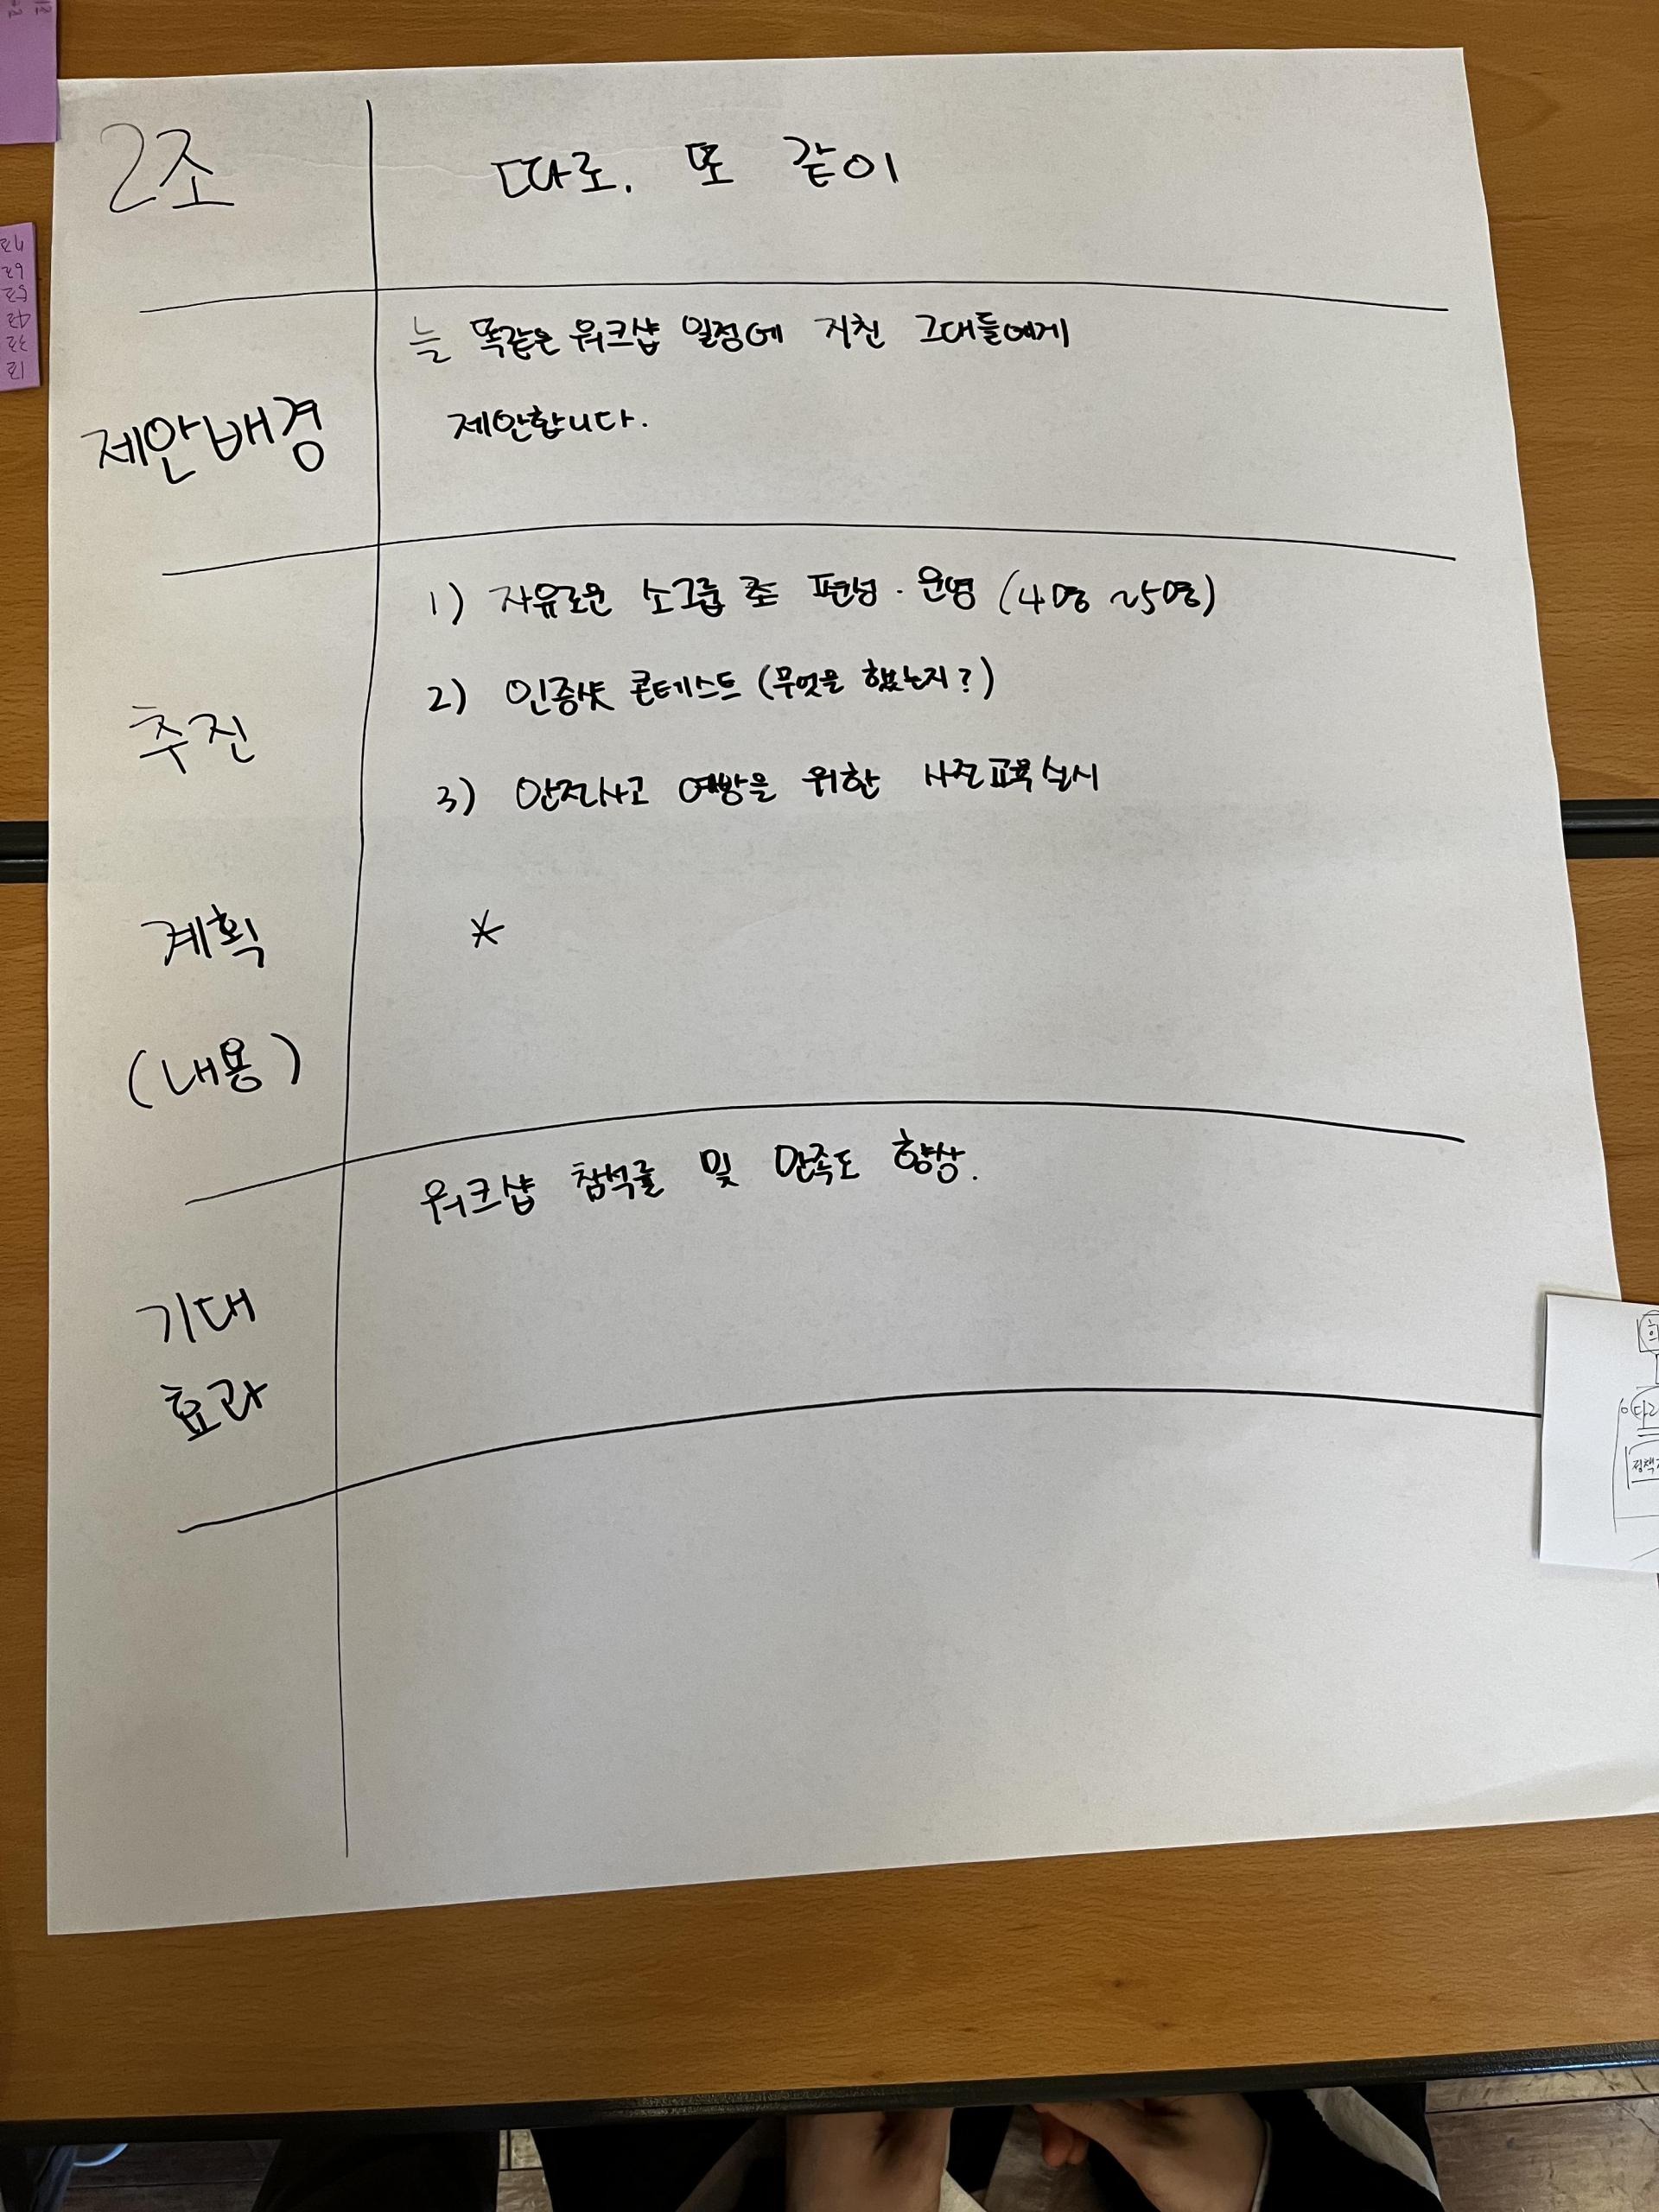 2조
따로. 또 같이
제안배경
늘 똑같은 워크샵 일정에 지친 그대들에게
제안합니다.
추진
계획
(내용)
1) 자유로운 소그룹 조 편성·운영 (4명~5명)
2) 인증샷 콘테스트 (무엇을 했는지?)
3) 안전사고 예방을 위한 사전교육실시
*
기대
효과
워크샵 참석률 및 만족도 향상.